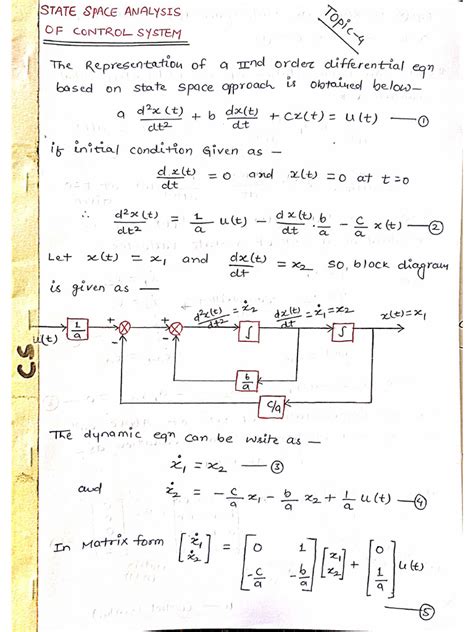 STATE SPACE ANALYSIS
OF CONTROL SYSTEM
Topic-4
The Representation of a IInd order differential eqn
based on state space approach is obtained below—
a d²x(t)/dt² + b dx(t)/dt + Cx(t) = u(t) —①
if initial condition Given as —
dx(t)/dt = 0 and x(t) = 0 at t=0
∴ d²x(t)/dt² = 1/a u(t) − dx(t)/dt · b/a − c/a x(t) —②
Let x(t) = x₁ and dx(t)/dt = x₂ so, block diagram
is given as —
u(t) 1/a + − + − d²x(t)/dt² = ẋ₂ ∫ dx(t)/dt = ẋ₁ = x₂ ∫ x(t) = x₁
b/a
c/a
CS
The dynamic eqn can be write as —
ẋ₁ = x₂ —③
and ẋ₂ = −c/a x₁ − b/a x₂ + 1/a u(t) —④
In Matrix form [ẋ₁ ẋ₂] = [0 1 −c/a −b/a] [x₁ x₂] + [0 1/a] u(t)
—⑤